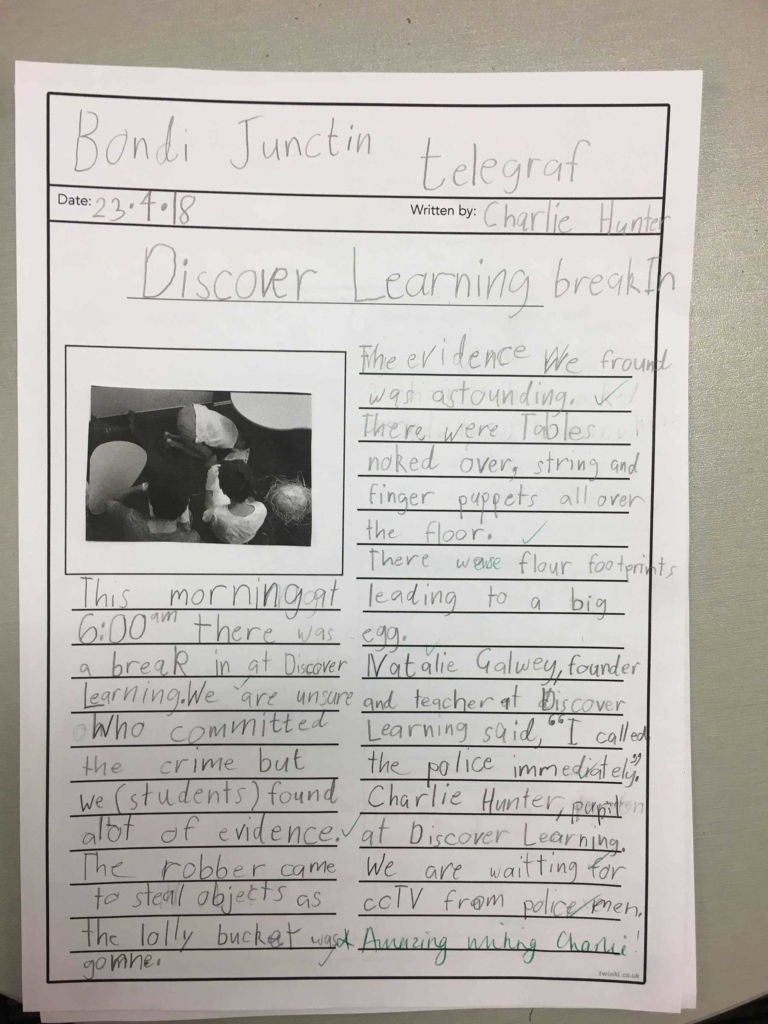 Bondi Junctin telegraf
Date: 23.4.18 Written by: Charlie Hunter
Discover Learning breakIn
This morning at
6:00am there was
a break in at Discover
Learning.We are unsure
who committed
the crime but
we (students) found
alot of evidence.
The robber came
to steall objects as
the lolly bucket was
gomne.
The evidence We fround
was astounding.
There were Tables
noked over, string and
finger puppets all over
the floor.
There were flour footprints
leading to a big
egg.
Natalie Galwey, founder
and teacher at Discover
Learning said, "I called
the police immediately."
Charlie Hunter, pupil
at Discover Learning.
We are waitting for
ccTV from police men.
Amazing writing Charlie!
twinkl.co.uk